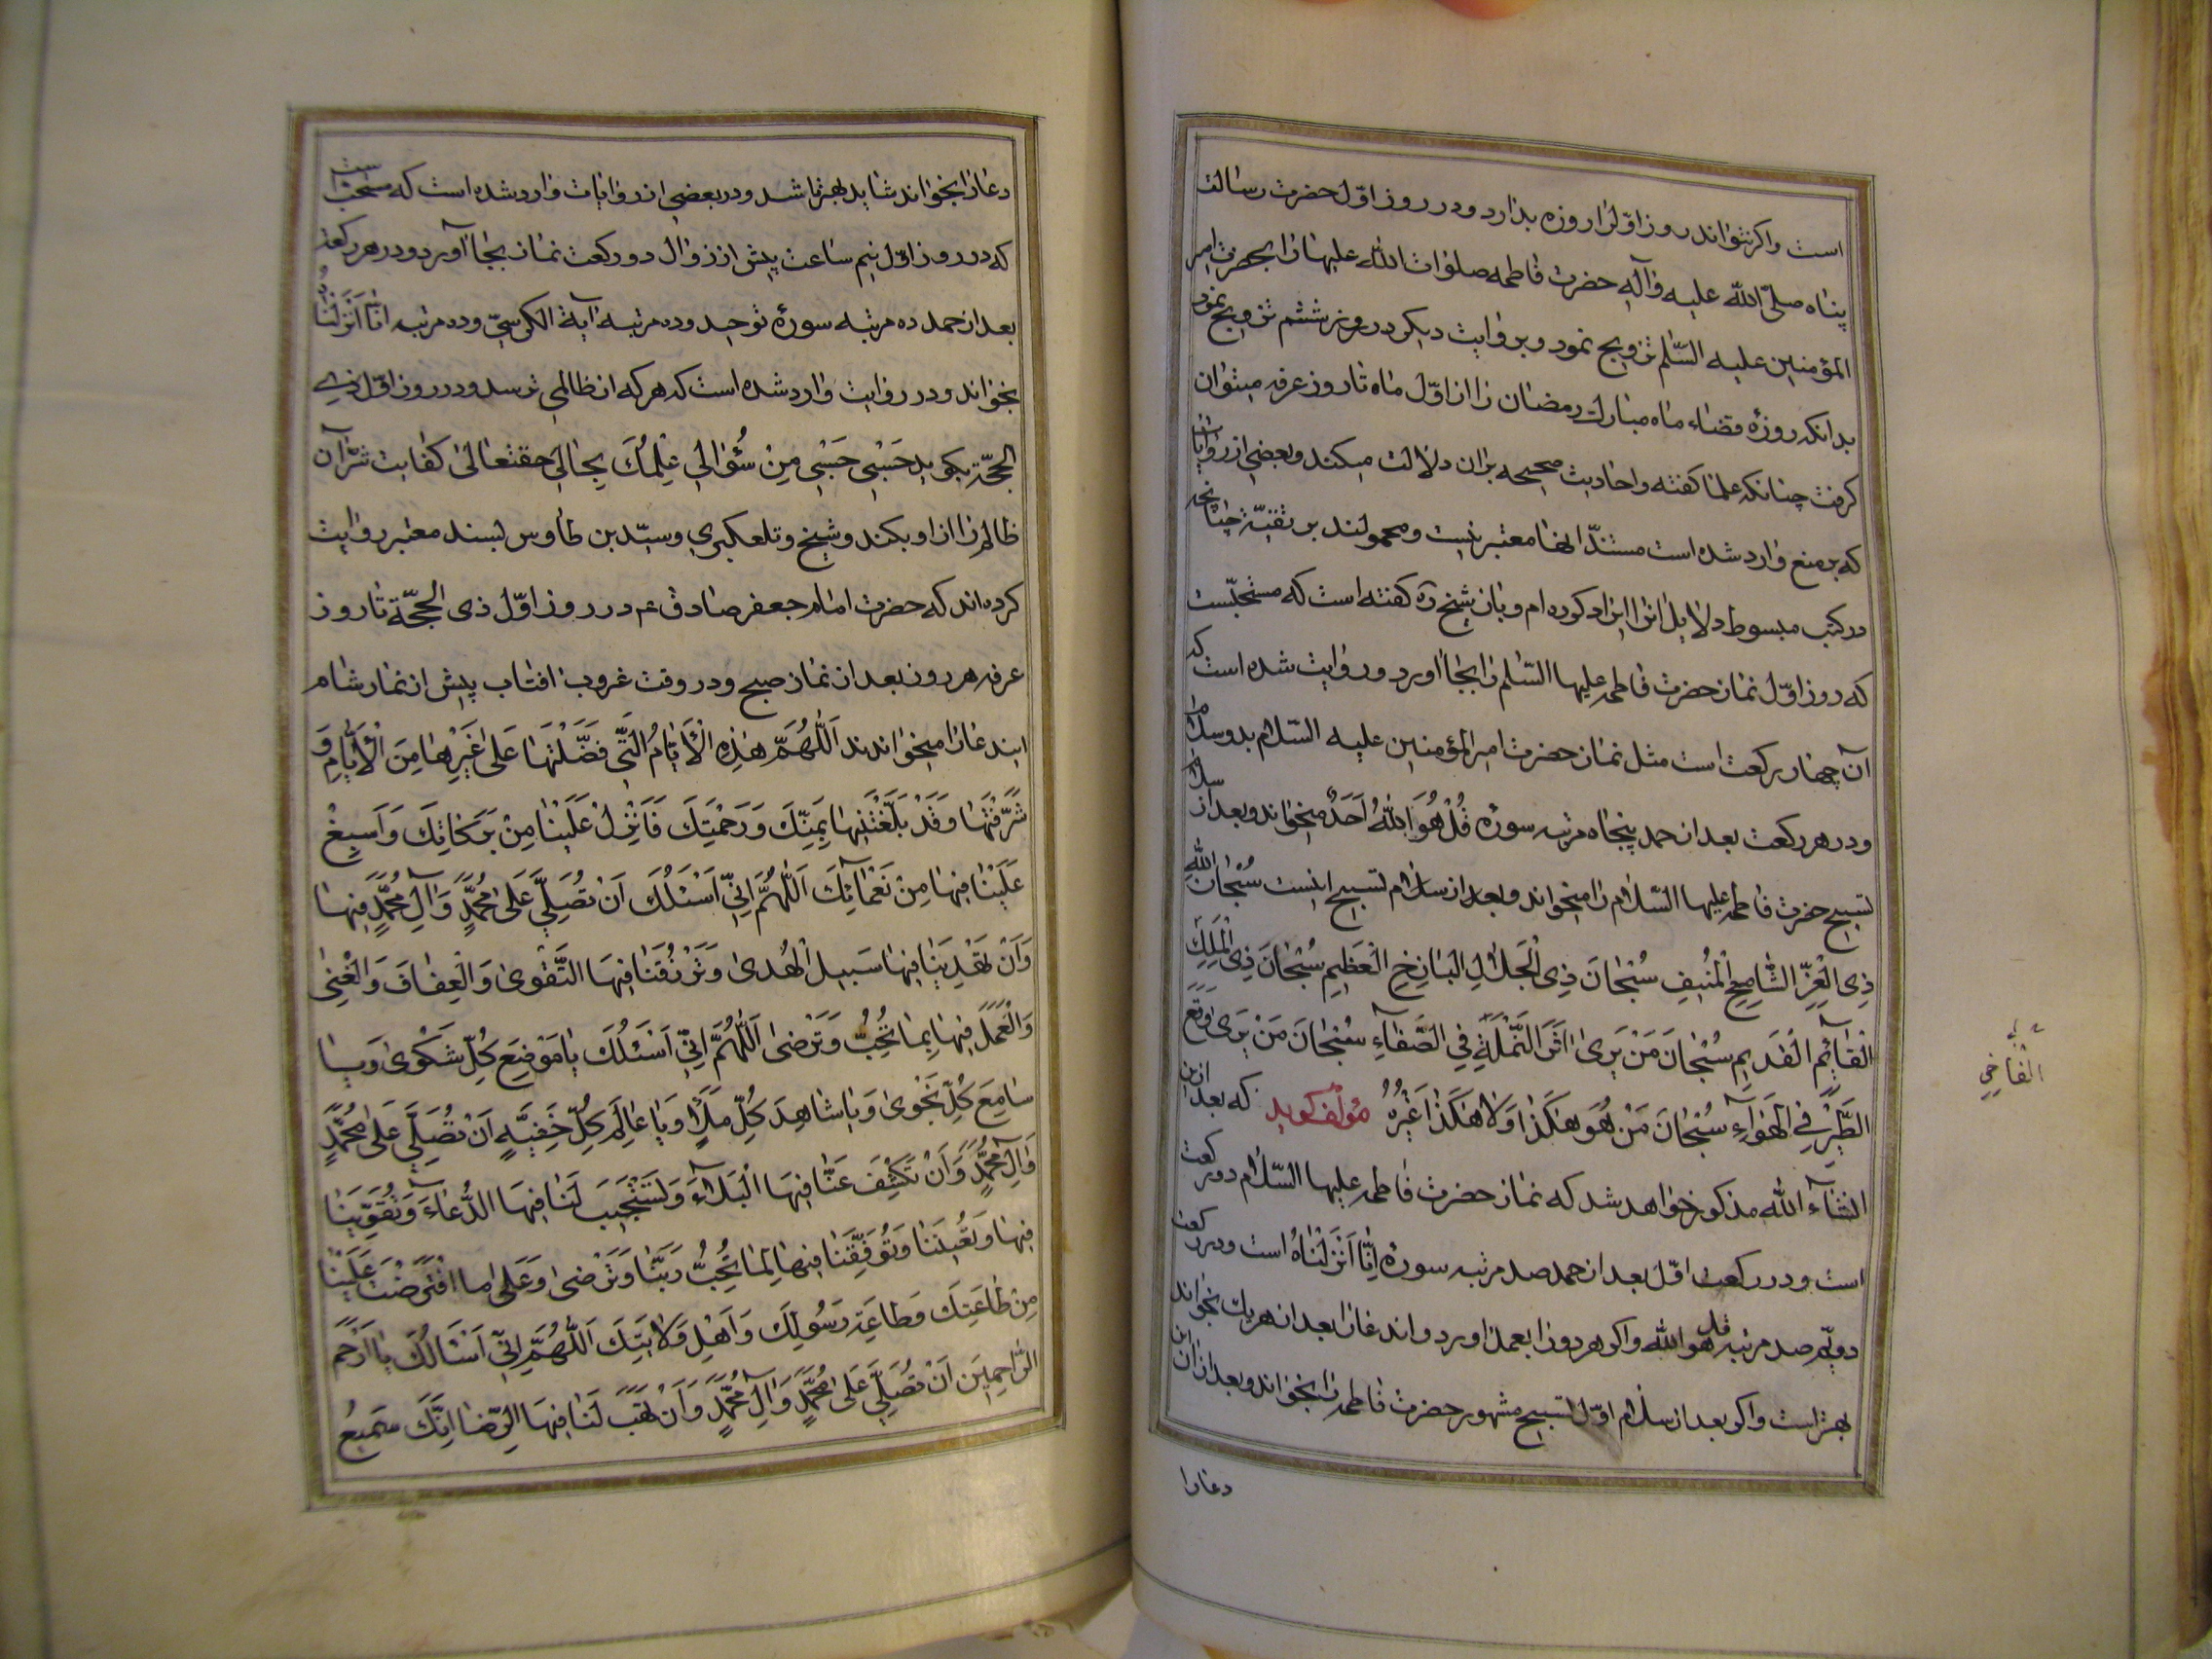 است واکر نتواند روز اوّلرا روزه بدارد ودر روز اوّل حضرت رسالت
پناه صلّی اللّه علیه وآله حضرت فاطمه صلوات اللّه علیها را بحضرت امیر
المؤمنین علیه السّلم تزویج نمود وبروایت دیکر در روز ششم تزویج نمود
بدانکه روزهٔ قضاء ماه مبارک رمضان را از اوّل ماه تا روز عرفه میتوان
کرفت چنانکه علما کفته واحادیث صحیحه بران دلالت میکند وبعضی از روایات
که بر منع وارد شده است مستند آنها معتبر نیست ومحمولند بر تقیّة چنانچه
در کتب مبسوط دلایل انرا ایراد کرده ام وبان شیخ ره کفته است که مستحبّست
که روز اوّل نماز حضرت فاطمه علیها السّلم را بجا اورد وروایت شده است که
آن چهار رکعت است مثل نماز حضرت امیر المؤمنین علیه السّلام بدو سلام
ودر هر رکعت بعد از حمد پنجاه مرتبه سورهٔ قُلْ هُوَ اللّٰهُ اَحَدٌ میخواند وبعد از سلام
تسبیح حضرت فاطمه علیها السّلام را میخواند وبعد از سلام تسبیح اینست سُبْحٰانَ اللّٰهِ
ذِی الْعِزِّ الشّٰامِخِ الْمُنیٖفِ سُبْحٰانَ ذِی الْجَلٰالِ الْبٰاذِخِ الْعَظیٖمِ سُبْحٰانَ ذِی الْمُلْكِ
الْقٰائِمِ الْقَدیٖمِ سُبْحٰانَ مَنْ یَرٰی اَثَرَ النَّمْلَةِ فِی الصَّفٰآءِ سُبْحٰانَ مَنْ یَرٰی وَقْعَ
الطَّیْرِ فِی الْهَوٰآءِ سُبْحٰانَ مَنْ هُوَ هٰکَذٰا وَلٰا هٰکَذٰا غَیْرُهُ مؤلف کوید که بعد ازین
انشآء اللّه مذکور خواهد شد که نماز حضرت فاطمه علیها السّلام دو رکعت
است ودر رکعت اوّل بعد از حمد صد مرتبه سورهٔ اِنّٰا اَنْزَلْنٰاهُ است ودر رکعت
دویّم صد مرتبه قل هو اللّه واکر هر دو را بعمل اورد واند عا را بعد از هر یك بخواند
بهتر است واکر بعد از سلام اوّل تسبیح مشهور حضرت فاطمه را بخواند وبعد از ان این
دعا را
دعا را بخواند شاید بهتر باشد ودر بعضی از روایات وارد شده است که مستحبّ است
که در روز اوّل نیم ساعت پیش از زوال دو رکعت نماز بجا آورد ودر هر رکعت
بعد از حمد ده مرتبه سورهٔ توحید وده مرتبه آیة الکرسیّ وده مرتبه انّا اَنْزَلْنٰاهُ
بخواند ودر روایت وارد شده است که هر که از ظالمی ترسد ودر روز اوّل ذی
الحجّة بکوید حَسْبی حَسْبی حَسْبی مِنْ سُؤٰالی عِلْمُكَ بِحٰالی حقتعالی کفایت شرّ آن
ظالم را از او بکند وشیخ وتلعکبری وسیّد بن طاوس بسند معتبر روایت
کرده اند که حضرت امام جعفر صادق ع در روز اوّل ذی الحجّة تا روز
عرفه هر روز بعد از نماز صبح ودر وقت غروب افتاب پیش از نماز شام
ایند عا را میخواندند اَللّٰهُمَّ هٰذِهِ الْاَیّٰامُ الَّتی فَضَّلْتَهٰا عَلیٰ غَیْرِهٰا مِنَ الْاَیّٰامِ وَ
شَرَّفْتَهٰا وَقَدْ بَلَّغْتَنیهٰا بِمَنِّكَ وَرَحْمَتِكَ فَاَنْزِلْ عَلَیْنٰا مِنْ بَرَکٰاتِكَ وَاَسْبِغْ
عَلَیْنٰا فیٖهٰا مِنْ نَعْمٰآئِكَ اَللّٰهُمَّ اِنّی اَسْئَلُكَ اَنْ تُصَلِّیَ عَلیٰ مُحَمَّدٍ وَآلِ مُحَمَّدٍ فیهٰا
وَاَنْ تَهْدِیَنٰا فیهٰا سَبیلَ الْهُدیٰ وَتَرْزُقَنٰا فیهَا التَّقْویٰ وَالْعِفٰافَ وَالْغِنیٰ
وَالْعَمَلَ فیهٰا بِمٰا تُحِبُّ وَتَرْضیٰ اَللّٰهُمَّ اِنّی اَسْئَلُكَ یٰا مَوْضِعَ کُلِّ شَکْویٰ وَیٰا
سٰامِعَ کُلِّ نَجْویٰ وَیٰا شٰاهِدَ کُلِّ مَلَاٍ وَیٰا عٰالِمَ کُلِّ خَفِیَّةٍ اَنْ تُصَلِّیَ عَلیٰ مُحَمَّدٍ
وَآلِ مُحَمَّدٍ وَاَنْ تَکْشِفَ عَنّٰا فیهَا الْبَلٰآءَ وَتَسْتَجیبَ لَنٰا فیهَا الدُّعٰآءَ وَتُقَوِّیَنٰا
فیهٰا وَتُعینَنٰا وَتُوَفِّقَنٰا فیهٰا لِمٰا تُحِبُّ رَبَّنٰا وَتَرْضیٰ وَعَلیٰ مٰا افْتَرَضْتَ عَلَیْنٰا
مِنْ طٰاعَتِكَ وَطٰاعَةِ رَسُولِكَ وَاَهْلِ وَلٰایَتِكَ اَللّٰهُمَّ اِنّی اَسْئَالُكَ یٰا اَرْحَمَ
الرّٰاحِمینَ اَنْ تُصَلِّیَ عَلیٰ مُحَمَّدٍ وَآلِ مُحَمَّدٍ وَاَنْ تَهَبَ لَنٰا فیهَا الرِّضٰا اِنَّكَ سَمیعُ